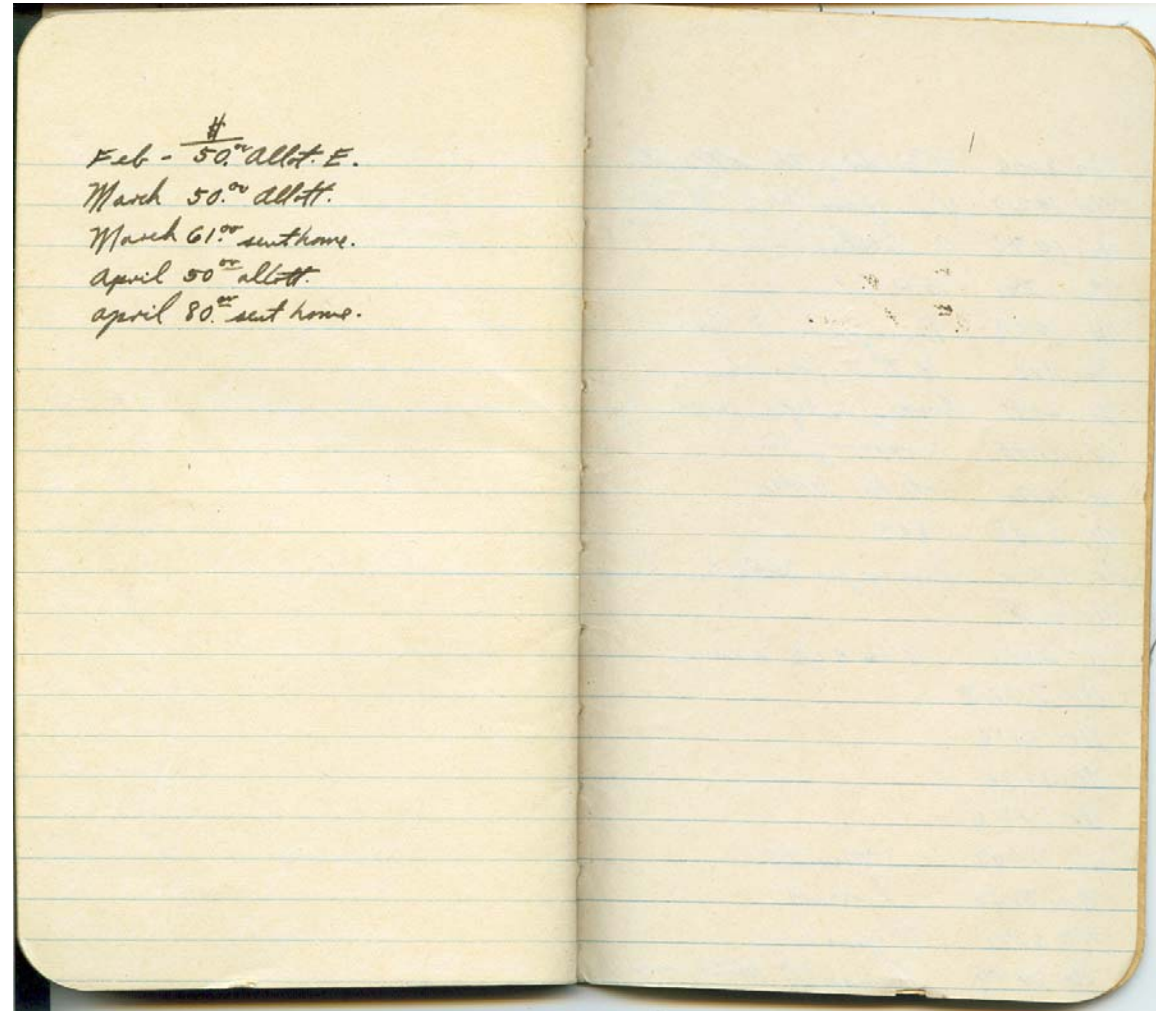 $
Feb - 50.00 Allot. E.
March 50.00 Allott.
March 61.00 sent home.
April 50 00 allott.
April 80.00 sent home.